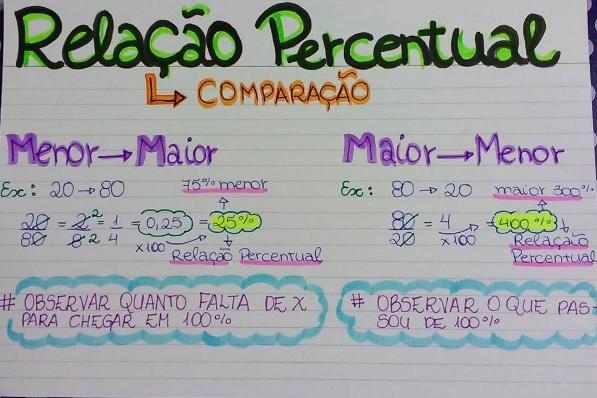 Relação Percentual
↳ COMPARAÇÃO
Menor → Maior
Ex: 20 → 80
75% menor
20/80 = 2/8 ÷2 = 1/4 = 0,25 = 25%
x100
Relação Percentual
# OBSERVAR QUANTO FALTA DE X
PARA CHEGAR EM 100%
Maior → Menor
Ex: 80 → 20
maior 300%
80/20 = 4 = 400%
x100
Relação
Percentual
# OBSERVAR O QUE PAS-
SOU DE 100%